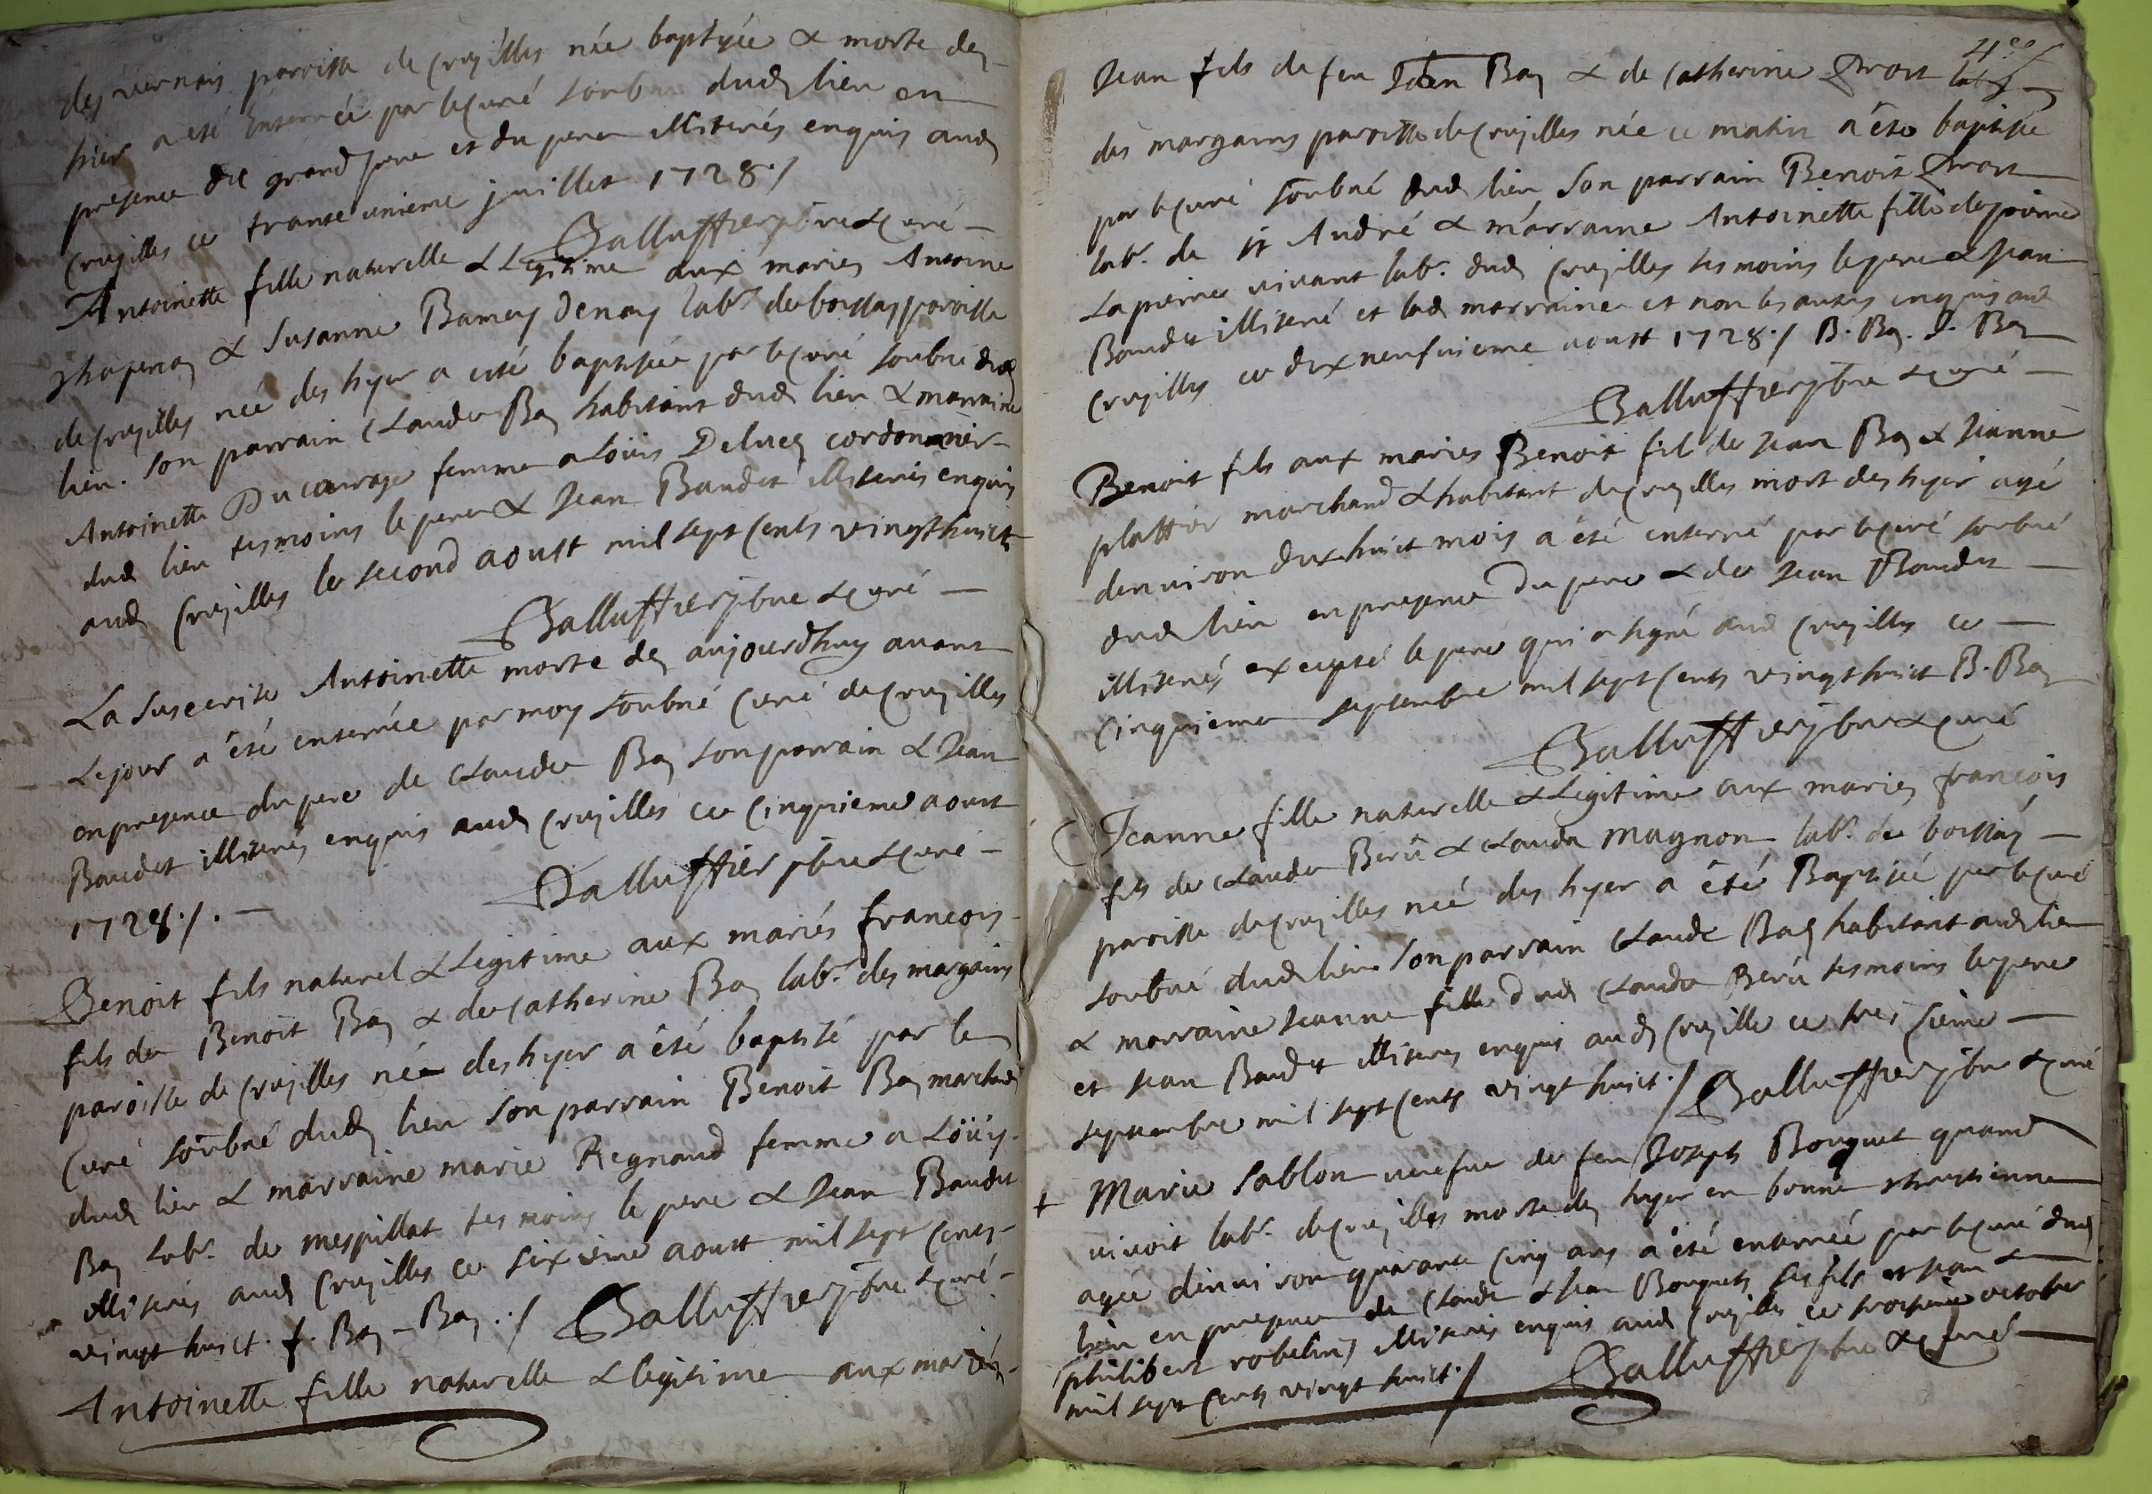 des vernais paroisse de Crujilles née baptysée & morte dez
hier a eté enterrée par le curé soubné dudz lieu en
presence du grand pere et du pere illiterés enquis audz
Crujilles ce trante unieme juillet 1728 ./
Galluffier pbre & curé —
Antoinette fille naturelle & Legitime aux mariez Antoine
& Susanne labr de boissay paroisse
de Crujilles née des hyer a eté baptisée par le curé soubné dudz
lien. son parrain Claude Bay habitant dudz lieu & marraine
Antoinette Ducourage femme a Loüis Delucz cordonanier
dudz lieu tesmoins le pere & Jean Baudet illiterés enquis
audz Crujilles le second aoust mil sept cents vingt huict
Galluffier pbre & curé —
La suscerite Antoinette morte dez aujourdhuy avant
Le jour a été enterrée par moy soubné Curé de Crujilles
en presence du pere de Claude Bay son parrain & Jean
Baudet illiterés enquis audz Crujilles ce Cinquieme aoust
1728 ./. —
Galluffier pbre & curé —
Benoit fils naturel & Legitime aux mariés françois
fils de Benoit Bay & de Catherine Bay labr. des margains
paroisse de Crujilles née des hyer a été baptisé par le
Curé soubné dudz lieu son parrain Benoit Bay marchand
dudz lieu & marraine marie Regnaud femme a Loüis
Bay labr. de mespillat tesmoins le pere & Jean Baudet
illiterés audz Crujilles ce sixieme aoust mil sept cents
vingt huict. f. Bay – Bay ./ Galluffier pbre & curé —
Antoinette fille naturelle & legitime aux mariés
Jean fils de feu Jean Bay & de Catherine labr
des margains paroisse de Crujilles née ce matin a été baptisée
par le curé soubné dudz lieu son parrain Benoit
labr. de st André & marraine Antoinette fille de pierre
Lapierre vivant labr. dudz Crujilles tesmoins le pere & Jean
Baudet illiteré et ladz marraine et non les autres enquis audz
Crujilles ce dix neufuieme aoust 1728 ./ B. Bay. J. Bay
Galluffier pbre & curé —
Benoit fils aux mariés Benoit fil de Jean Bay & Jeanne
plattier marchand & habitant de Crujilles mort des hyer agé
denuiron dix huict mois a été enterré par le curé soubné
dudz lieu en presence du pere & de Jean Baudet —
illiterés excepté le pere qui a signé audz Crujilles ce —
Cinquieme septembre mil sept cents vingt huict B. Bay
Galluffier pbre & curé
Jeanne fille naturelle & Legitime aux mariez françois
fils de Claude Berü & Clauda magnon labr. de boissay —
paroisse de Crujilles née des hyer a été Baptisée par le curé
soubné dudz lieu son parrain Claude Bay habitant audz lieu
& marraine Jeanne fille dudz Claude Berü tesmoins le pere
et Jean Baudet illiterez enquis audz Crujille ce sieme —
septembre mil sept cents vingt huict ./ Galluffier pbre & curé
+ Marie Sablon veufue de feu Joseph Bonquet quand
vivoit labr. de Crujilles morte dez hyer en bonne chretienne
agée dinuiron quarante cinq ans a été enterrée par le curé dudz
lieu en presence de Claude & Jean Bonquets ses fils et Jean &
philibert robelins illiterés enquis audz Crujilles ce troisieme octobre
mil sept cents vingt huict ./ Galluffier pbre & curé —